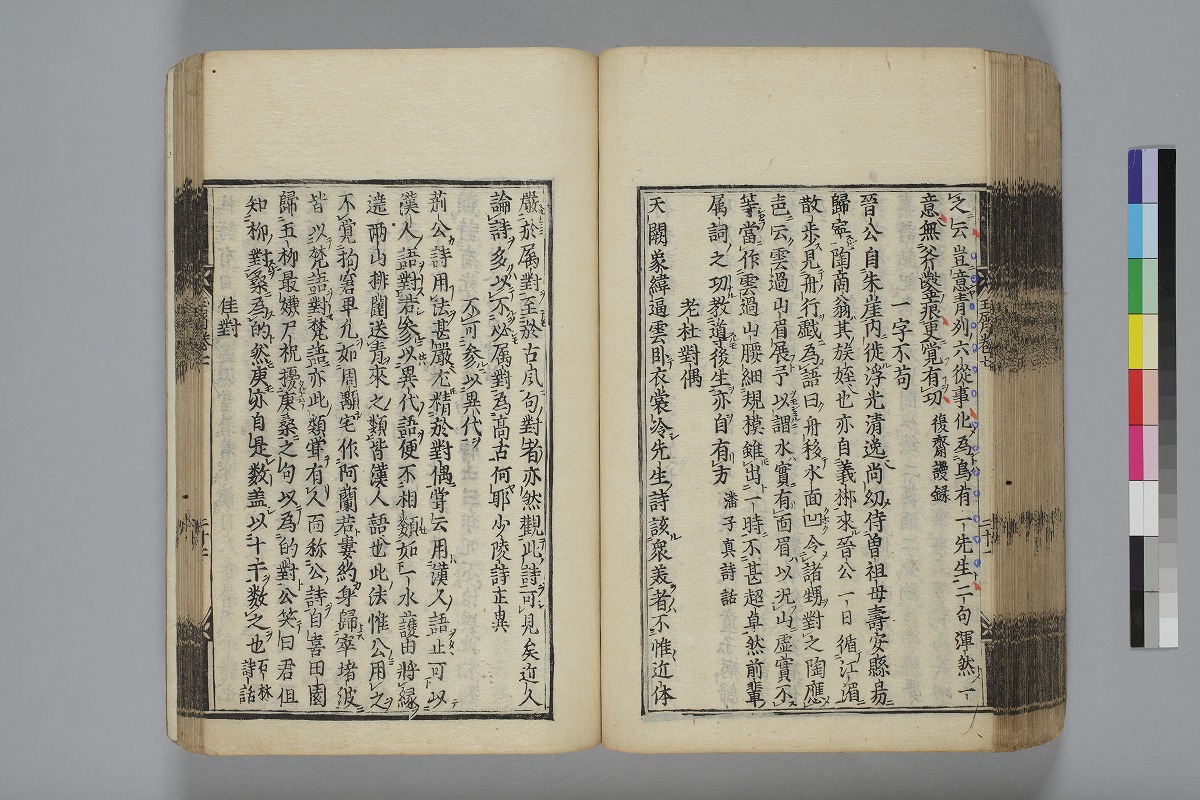 之云豈意青列六從事化為烏有一先生二句渾然一
意無斧鑿痕更覺有功 復齋謾録
一字不苟
晉公自朱崖内徙浮光清逸尚幼侍曽祖母壽安縣昜
歸寧陶商翁其族姪也亦自義梆來晉公一日循江湄
散歩見舟行戯為語曰舟移水面凹令諸甥對之陶應
声云雲過山眉展予以謂水實有面眉以况山虚實不
等當作雲過山腰細規模雖出一時不甚超卓然前輩
属詞之功教導後生亦自有方 潘子真詩話
老杜對偶
天闕象緯逼雲卧衣裳冷先生詩該衆美者不惟近体
嚴於属對至於古風句對者亦然觀此詩可見矣近人
論詩多以不必属對為髙古何耶少陵詩正異
不可參以異代
荊公詩用法甚嚴尤精於對偶甞云用漢人語止可以
漢人語對若參以異代語便不相類如一水護田將緑
遶兩山排闥送青來之類皆漢人語也此法惟公用之
不覺拘窘卑凡如周顒宅作阿蘭若婁約身歸窣堵波
皆以梵語對梵語亦此類甞有人面称公詩自喜田園
歸五柳最嫌尸祝擾庚桑之句以為的對公笑曰君但
知柳對桑為的然庚亦自是数盖以十干数之也 石林詩話
佳對